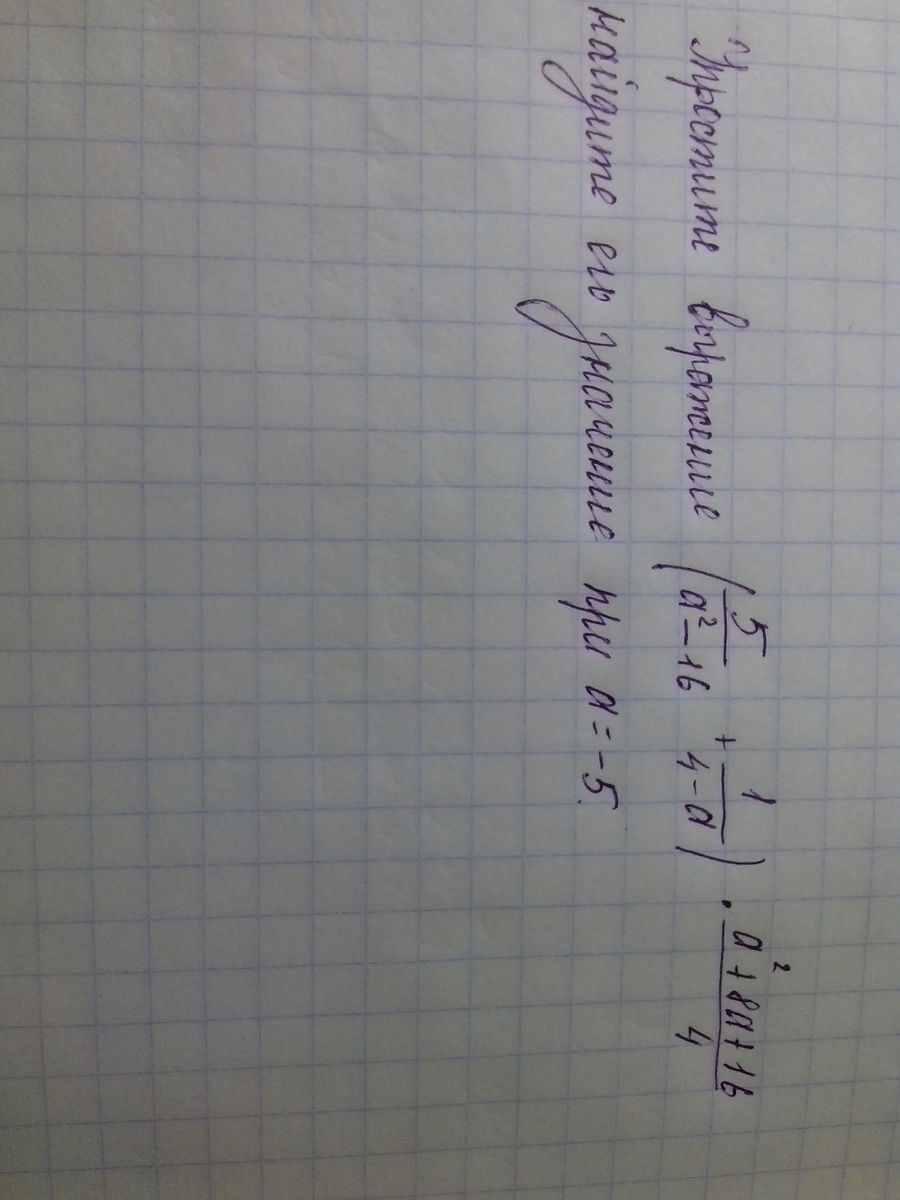 Упростите выражение (5/(a²-16) + 1/(4-a)) · (a²+8a+16)/4
найдите его значение при a=-5.